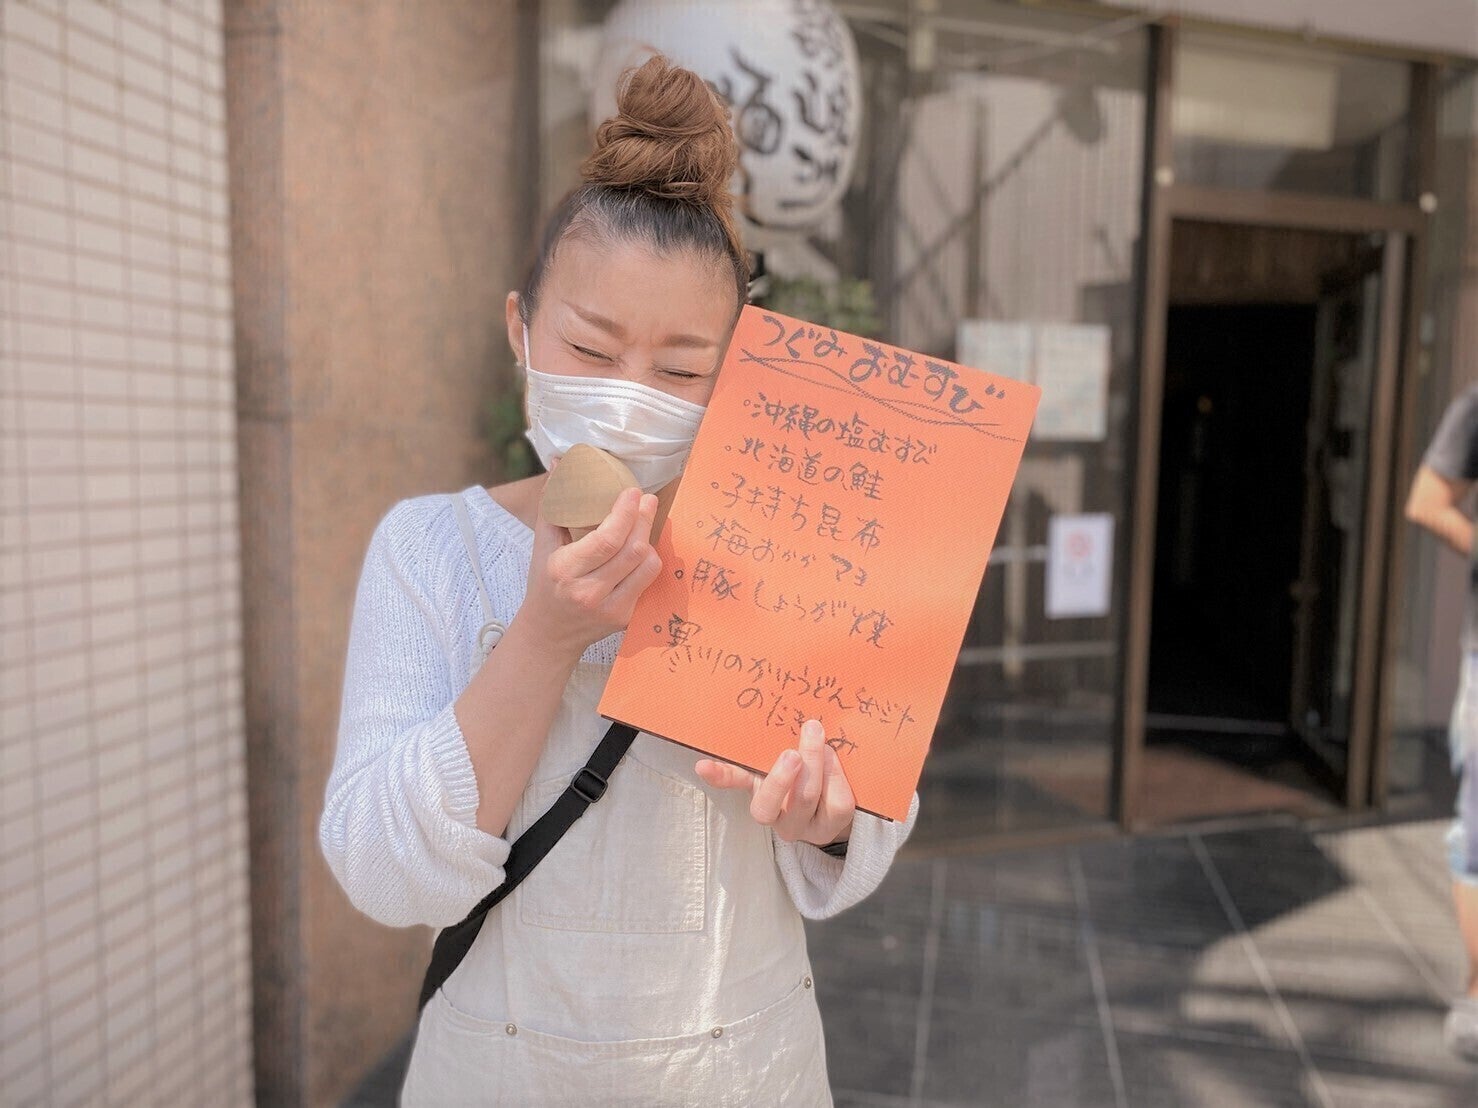 つぐみ おむすび
沖縄の塩むすび
北海道の鮭
子持ち昆布
梅おかかマヨ
豚しょうが焼
寒川のかけうどんだし汁
のたきこみ
道